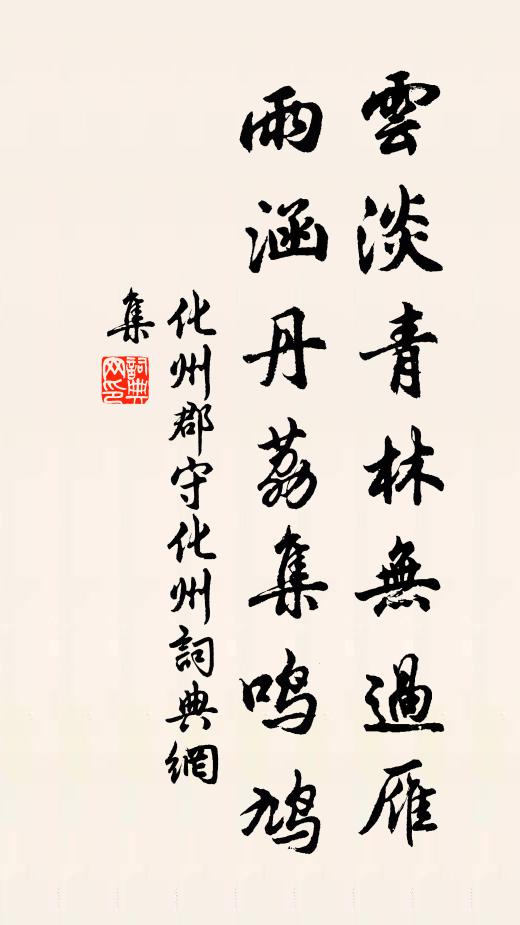 雲淡青林無過雁
雨涵丹荔集鳴鳩
化州郡守化州詞典網
集
詞典網印